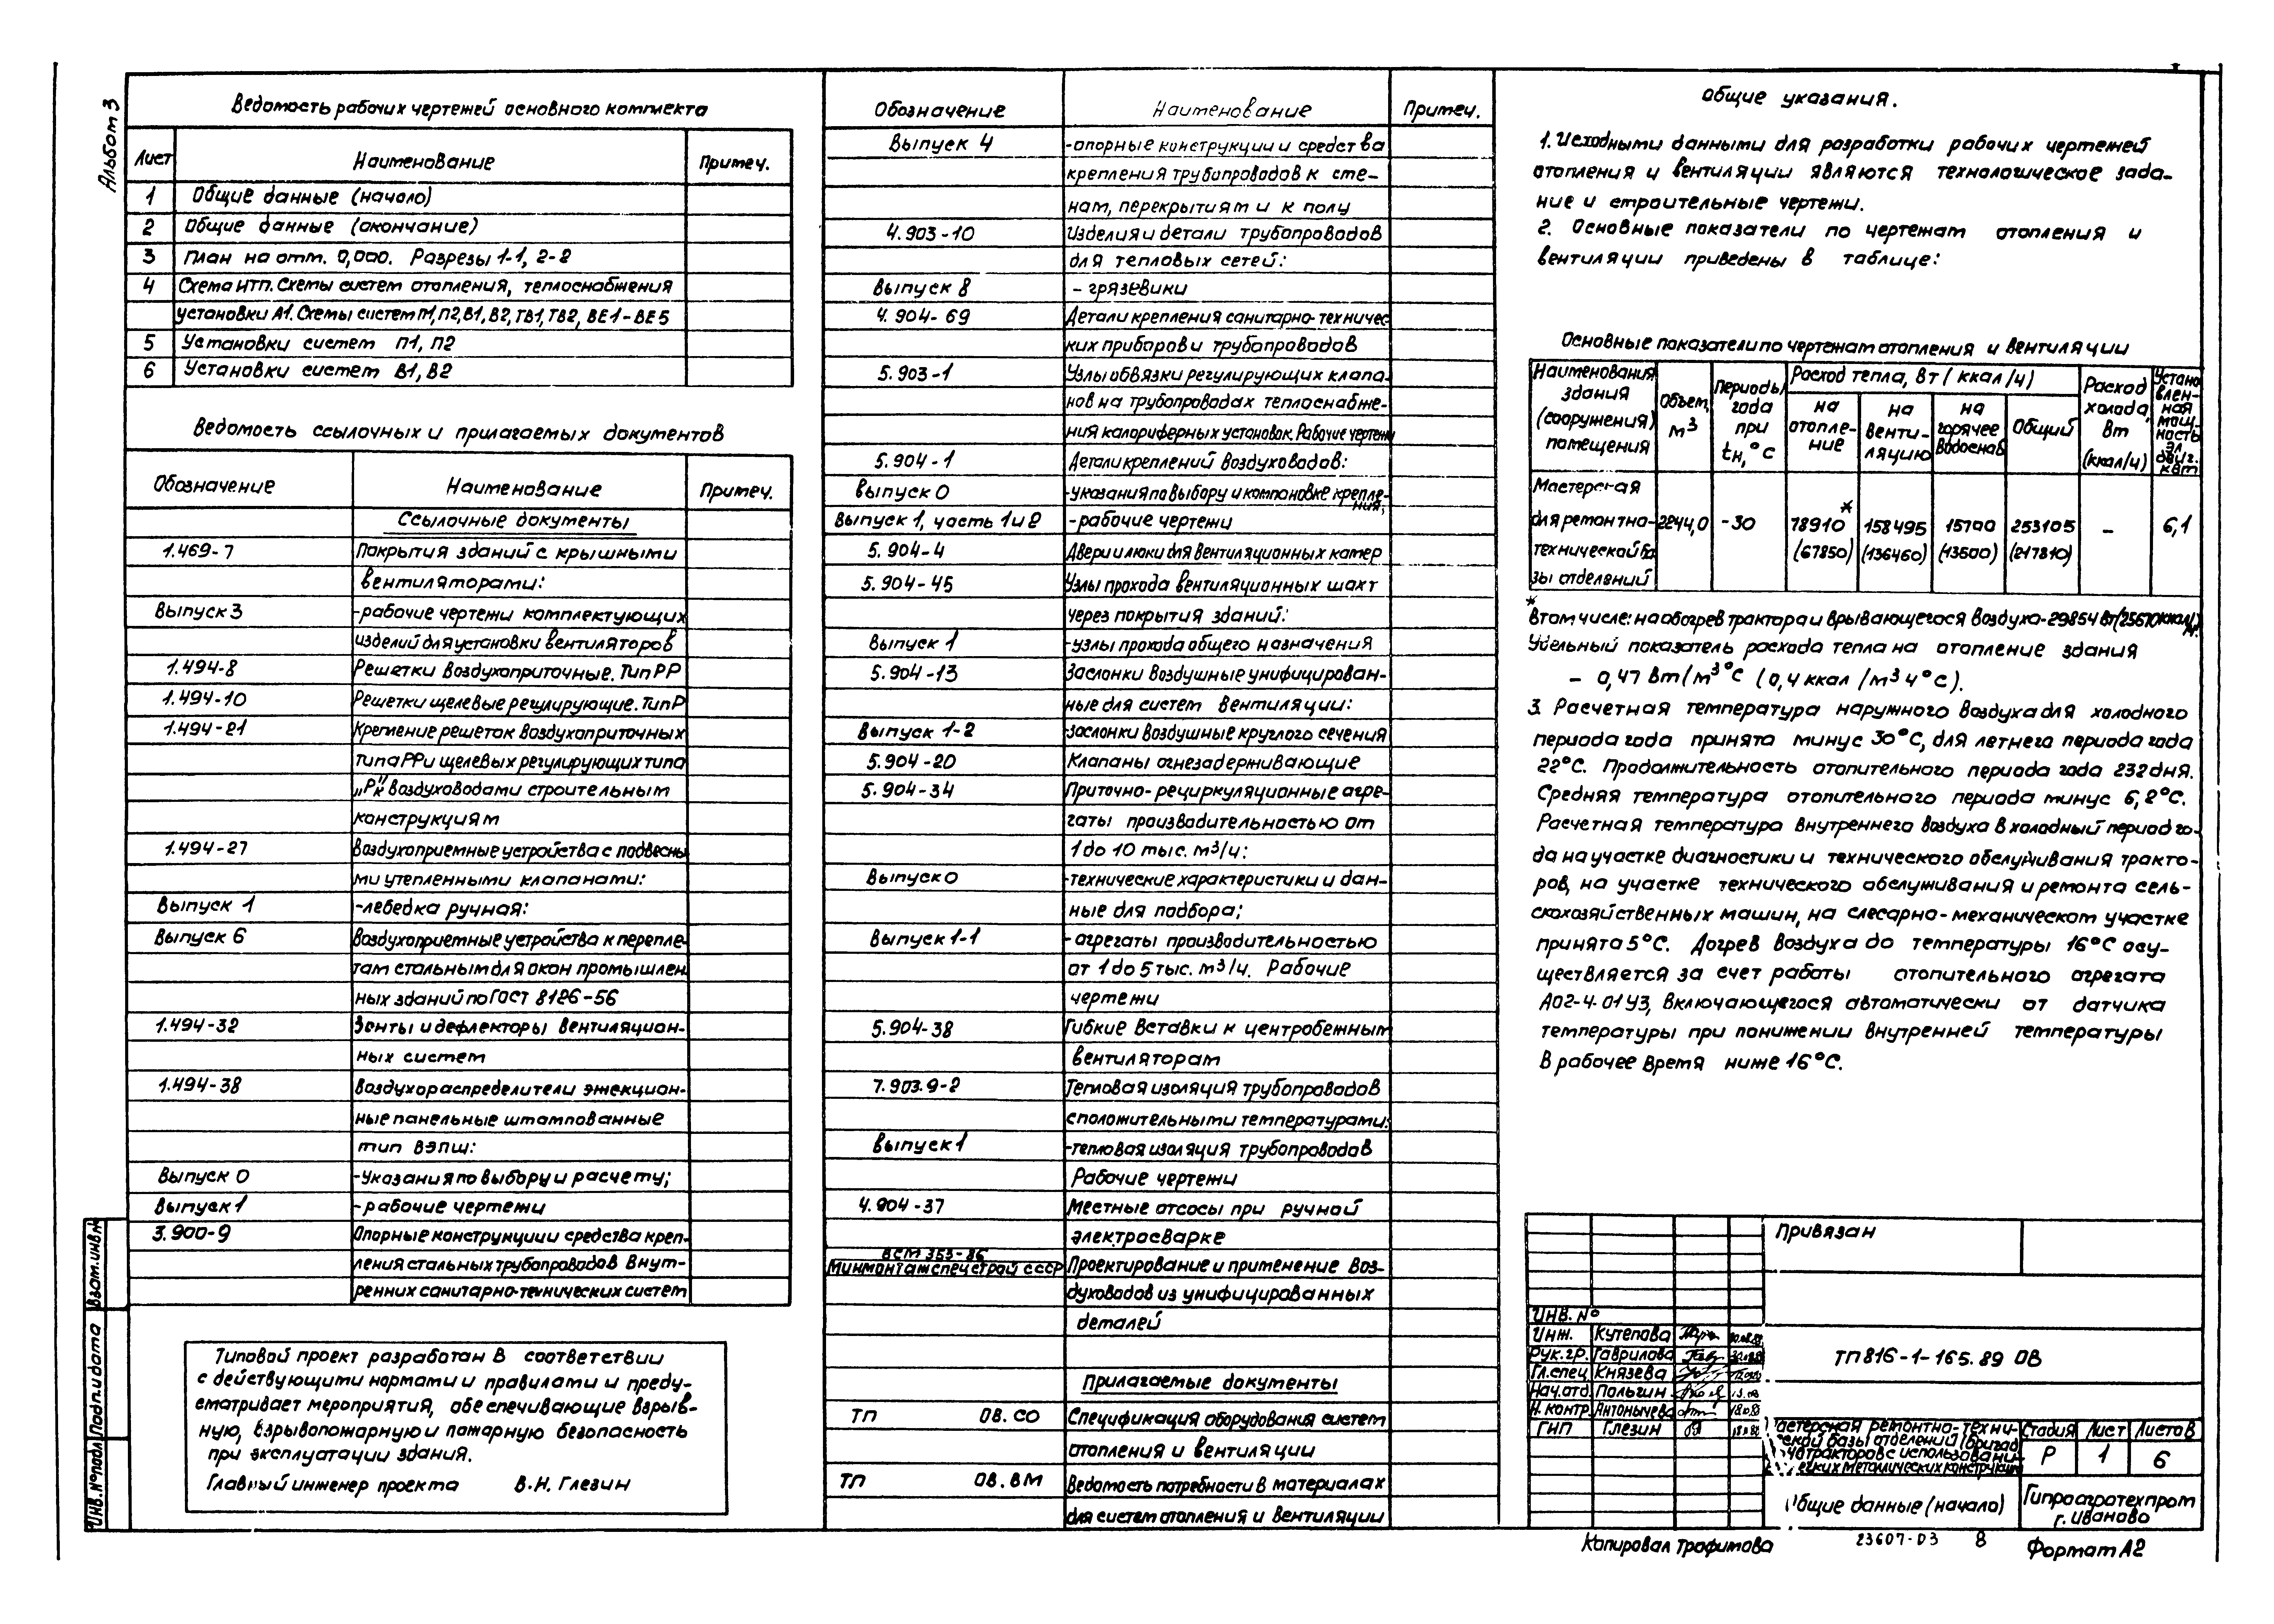 Альбом 3
Ведомость рабочих чертежей основного комплекта
Лист Наименование Примеч.
1 Общие данные (начало)
2 Общие данные (окончание)
3 План на отм. 0,000. Разрезы 1-1, 2-2
4 Схема ИТП. Схемы систем отопления, теплоснабжения
установки А1. Схемы систем П1, П2, В1, В2, ТВ1, ТВ2, ВЕ1-ВЕ5
5 Установки систем П1, П2
6 Установки систем В1, В2
Ведомость ссылочных и прилагаемых документов
Обозначение Наименование Примеч.
Ссылочные документы
1.469-7 Покрытия зданий с крышными
вентиляторами:
Выпуск 3 -рабочие чертежи комплектующих
изделий для установки вентиляторов
1.494-8 Решетки воздухоприточные. Тип РР
1.494-10 Решетки щелевые регулирующие. Тип Р
1.494-21 Крепление решеток воздухоприточных
типа РР и щелевых регулирующих типа
„Р" к воздуховодам строительным
конструкциям
1.494-27 Воздухоприемные устройства с подвесны
ми утепленными клапанами:
Выпуск 1 -лебедка ручная:
Выпуск 6 Воздухоприемные устройства к перепле-
там стальным для окон промышлен
ных зданий по ГОСТ 8126-56
1.494-32 Зонты и дефлекторы вентиляцион-
ных систем
1.494-38 Воздухораспределители эжекцион-
ные панельные штампованные
тип ВЭПШ:
Выпуск 0 -Указания по выбору и расчету;
Выпуск 1 -рабочие чертежи
3.900-9 Опорные конструкции и средства креп-
ления стальных трубопроводов внут-
ренних санитарно-технических систем
Типовой проект разработан в соответствии
с действующими нормами и правилами и преду-
сматривает мероприятия, обеспечивающие взрыв-
ную, взрывопожарную и пожарную безопасность
при эксплуатации здания.
Главный инженер проекта В.Н. Глезин
Взам. инв. №
Подп. и дата
Инв. № подл
Обозначение Наименование Примеч.
Выпуск 4 -опорные конструкции и средства
крепления трубопроводов к сте-
нам, перекрытиям и к полу
4.903-10 Изделия и детали трубопроводов
для тепловых сетей:
Выпуск 8 - грязевики
4.904-69 Детали крепления санитарно-техничес
ких приборов и трубопроводов
5.903-1 Узлы обвязки регулирующих клапа-
нов на трубопроводах теплоснабже-
ния калориферных установок. Рабочие чертежи
5.904-1 Детали креплений воздуховодов:
Выпуск 0 -указания по выбору и компоновке крепле-
ния;
Выпуск 1, часть 1 и 2 -рабочие чертежи
5.904-4 Двери и люки для вентиляционных камер
5.904-45 Узлы прохода вентиляционных шахт
через покрытия зданий:
Выпуск 1 -узлы прохода общего назначения
5.904-13 Заслонки воздушные унифицирован-
ные для систем вентиляции:
Выпуск 1-2 -заслонки воздушные круглого сечения
5.904-20 Клапаны огнезадерживающие
5.904-34 Приточно-рециркуляционные агре-
гаты производительностью от
1 до 10 тыс. м³/ч:
Выпуск 0 -технические характеристики и дан-
ные для подбора;
Выпуск 1-1 -агрегаты производительностью
от 1 до 5 тыс. м³/ч. Рабочие
чертежи
5.904-38 Гибкие вставки к центробежным
вентиляторам
7.903.9-2 Тепловая изоляция трубопроводов
с положительными температурами:
Выпуск 1 -тепловая изоляция трубопроводов
Рабочие чертежи
4.904-37 Местные отсосы при ручной
электросварке
ВСМ 353-86
Минмонтажспецстрой СССР Проектирование и применение воз-
духоводов из унифицированных
деталей
Прилагаемые документы
ТП ОВ.СО Спецификация оборудования систем
отопления и вентиляции
ТП ОВ.ВМ Ведомость потребности в материалах
для систем отопления и вентиляции
Общие указания.
1. Исходными данными для разработки рабочих чертежей
отопления и вентиляции являются технологическое зада-
ние и строительные чертежи.
2. Основные показатели по чертежам отопления и
вентиляции приведены в таблице:
Основные показатели по чертежам отопления и вентиляции
Наименования здания (сооружения) помещения
Объем, м³
Периоды года при tн, °С
Расход тепла, Вт (ккал/ч)
на отопле-ние
на венти-ляцию
на горячее водоснаб
Общий
Расход холода, Вт (ккал/ч)
Устано влен-ная мощ-ность эл. двиг. кВт
Мастерская
для ремонтно- 2244,0 -30 78910* 158495 15700 253105 – 6,1
технической ба (67850) (136460) (13500) (217810)
зы отделений
* В том числе: на обогрев трактора и врывающегося воздуха-29854 Вт (25670 ккал/ч).
Удельный показатель расхода тепла на отопление здания
- 0,47 Вт/м³°С (0,4 ккал/м³ ч °С).
3. Расчетная температура наружного воздуха для холодного
периода года принята минус 30°С, для летнего периода года
22°С. Продолжительность отопительного периода года 232 дня.
Средняя температура отопительного периода минус 6,2°С.
Расчетная температура внутреннего воздуха в холодный период го-
да на участке диагностики и технического обслуживания тракто-
ров, на участке технического обслуживания и ремонта сель-
скохозяйственных машин, на слесарно-механическом участке
принята 5°С. Догрев воздуха до температуры 16°С осу-
ществляется за счет работы отопительного агрегата
АО2-4-01У3, включающегося автоматически от датчика
температуры при понижении внутренней температуры
в рабочее время ниже 16°С.
Привязан
Инв. №
Инж. Кутепова
Рук.гр. Гаврилова
Гл.спец Князева
Нач.отд. Полыгин
Н.контр. Антонычева
ГИП Глезин
ТП 816-1-165.89 ОВ
мастерская ремонтно-техни-
ческой базы отделений (бригад
тракторов с использовани-
легких металлических конструкций
Стадия Лист Листов
Р 1 6
Общие данные (начало)
Гипроагротехпром
г. Иваново
Копировал Трофимова 23607-03 8 Формат А2